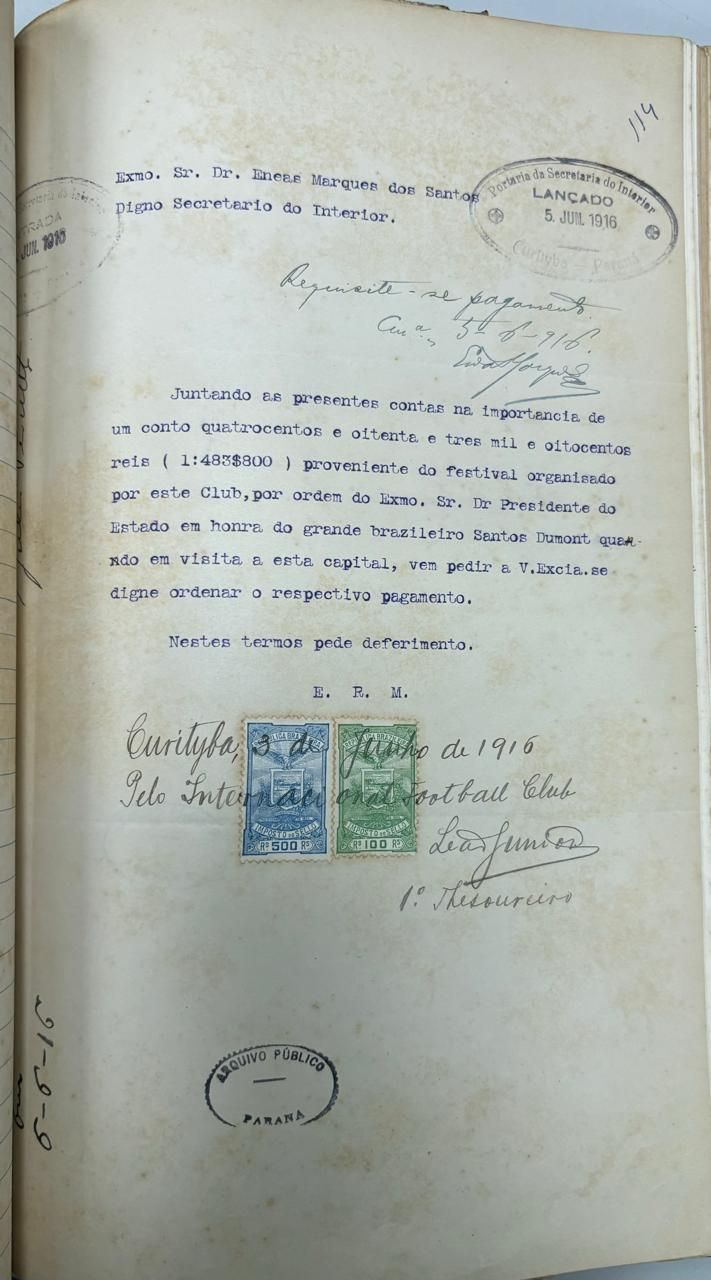 114
Exmo. Sr. Dr. Eneas Marques dos Santos
Digno Secretario do Interior.
Portaria da Secretaria do Interior
LANÇADO
5. JUN. 1916
Curityba — Paraná
JUN. 1916
Requisite-se pagamento.
5-6-916.
Juntando as presentes contas na importancia de
um conto quatrocentos e oitenta e tres mil e oitocentos
reis ( 1:483$800 ) proveniente do festival organisado
por este Club,por ordem do Exmo. Sr. Dr Presidente do
Estado em honra do grande brazileiro Santos Dumont quan-
ndo em visita a esta capital, vem pedir a V.Excia.se
digne ordenar o respectivo pagamento.
Nestes termos pede deferimento.
E. R. M.
Curityba, 3 de Junho de 1916
Pelo Internacional Football Club
Leal Junior
1º Thesoureiro
REPUBLICA BRAZILEIRA
IMPOSTO DO SELLO
Rs 500 Rs
REPUBLICA BRAZILEIRA
IMPOSTO DO SELLO
Rs 100 Rs
ARQUIVO PÚBLICO
—
PARANÁ